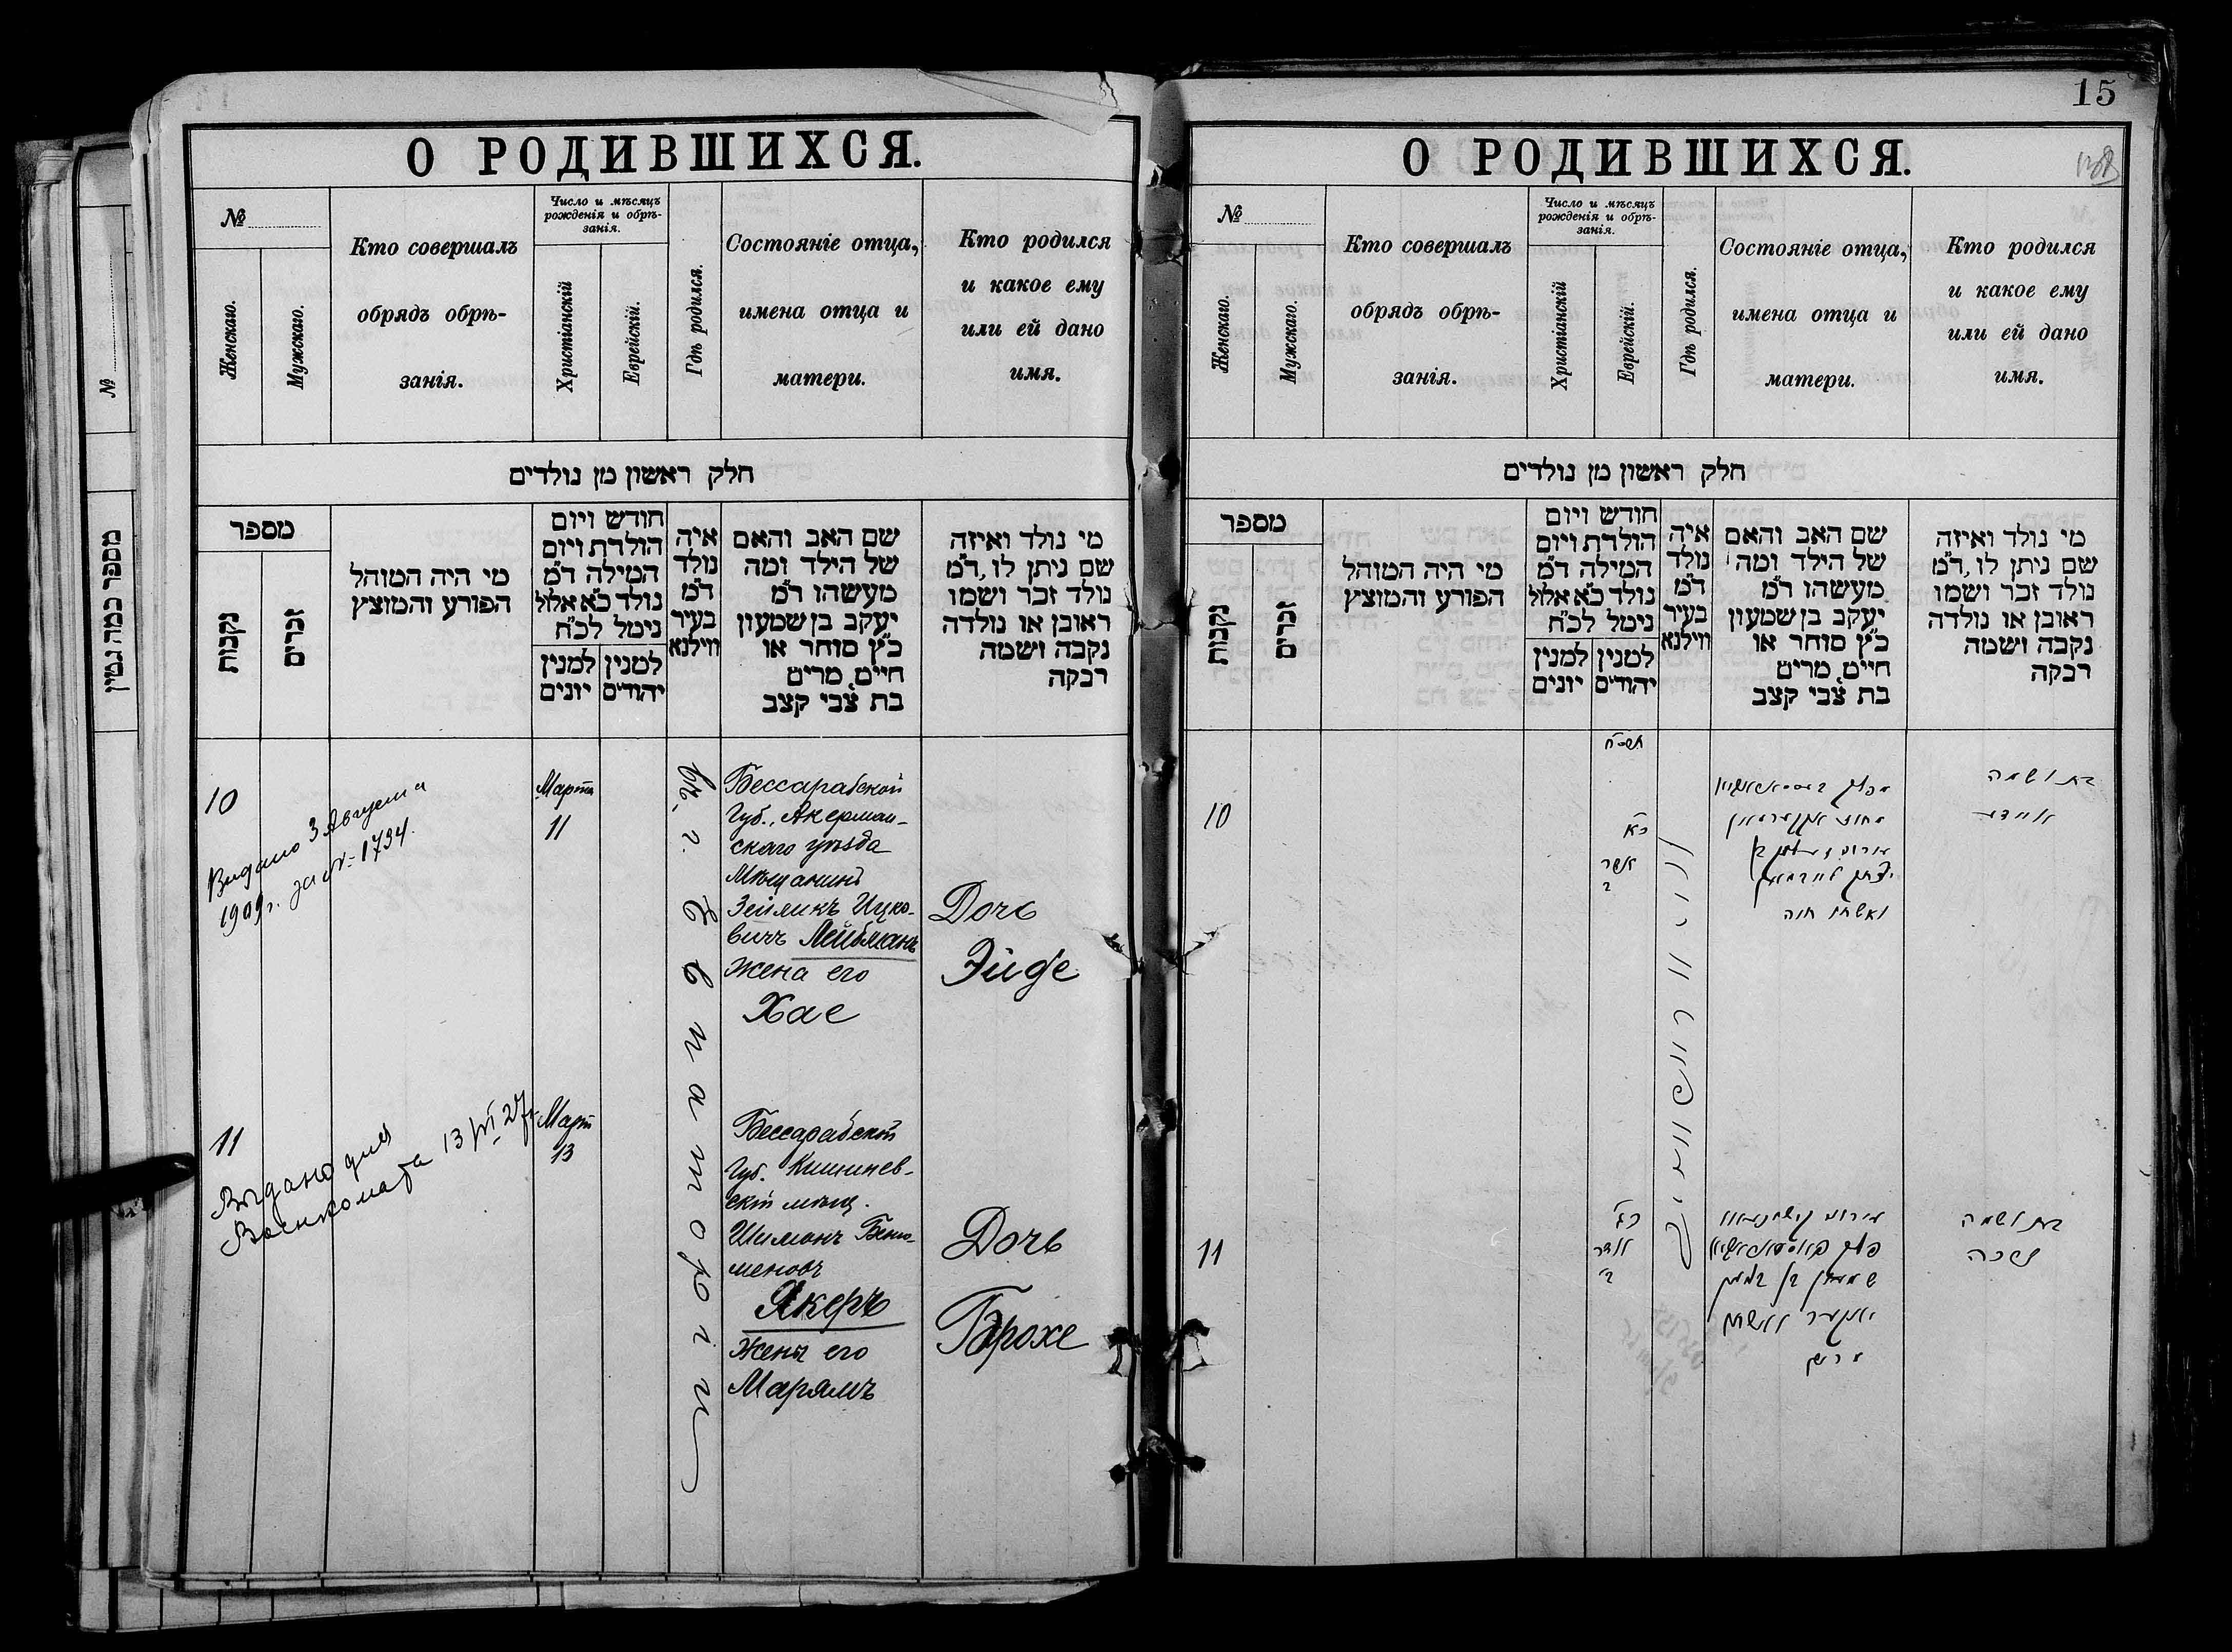 О РОДИВШИХСЯ.
№
Женскаго.
Мужскаго.
Кто совершалъ
обрядъ обрѣ-
занія.
Число и мѣсяцъ
рожденія и обрѣ-
занія.
Христіанскій
Еврейскій.
Гдѣ родился.
Состояніе отца,
имена отца и
матери.
Кто родился
и какое ему
или ей дано
имя.
חלק ראשון מן נולדים
מספר
נקבות
זכרים
מי היה המוהל
הפורע והמוצץ
חודש ויום
הולדת ויום
המילה ד״מ
נולד כ״א אלול
נימל לכ״ח
למנין יונים
למנין יהודים
איה
נולד
ד״מ
בעיר
ווילנא
שם האב והאם
של הילד ומה
מעשהו ד״מ
יעקב בן שמעון
כ״ץ סוחר או
חיים, מרים
בת צבי קצב
מי נולד ואיזה
שם ניתן לו, ד״מ
נולד זכר ושמו
ראובן או נולדה
נקבה ושמה
רבקה
10
Выдано 3 Августа
1909 г. за № 1734.
Марта
11
Бессарабской
Губ., Акерман-
скаго уѣзда
Мѣщанинъ
Зейликъ Ицко-
вичъ Лейбманъ
Жена его
Хае
Дочь
Эйде
въ г. Евпаторіи
11
Выдано для
Военкомата 13/VI 27 г.
Март
13
Бессарабской
Губ. Кишинев-
скій мѣщ.
Шимонъ Беню-
меновъ
Якеръ
Жена его
Марямъ
Дочь
Брохе
№
מספר כמה גטין
15
О РОДИВШИХСЯ.
№
Женскаго.
Мужскаго.
Кто совершалъ
обрядъ обрѣ-
занія.
Число и мѣсяцъ
рожденія и обрѣ-
занія.
Христіанскій
Еврейскій.
Гдѣ родился.
Состояніе отца,
имена отца и
матери.
Кто родился
и какое ему
или ей дано
имя.
חלק ראשון מן נולדים
מספר
נקבות
זכרים
מי היה המוהל
הפורע והמוצץ
חודש ויום
הולדת ויום
המילה ד״מ
נולד כ״א אלול
נימל לכ״ח
למנין יונים
למנין יהודים
איה
נולד
ד״מ
בעיר
ווילנא
שם האב והאם
של הילד ומה
מעשהו ד״מ
יעקב בן שמעון
כ״ץ סוחר או
חיים, מרים
בת צבי קצב
מי נולד ואיזה
שם ניתן לו, ד״מ
נולד זכר ושמו
ראובן או נולדה
נקבה ושמה
רבקה
10
כ״א
אדר
יצחק לייבמאן
ואשתו חוה
בת ושמה
איידא
11
כ״ג
אדר
ב׳
שמעון בן בנימין
יאקער ואשתו
מרים
בת ושמה
ברכה